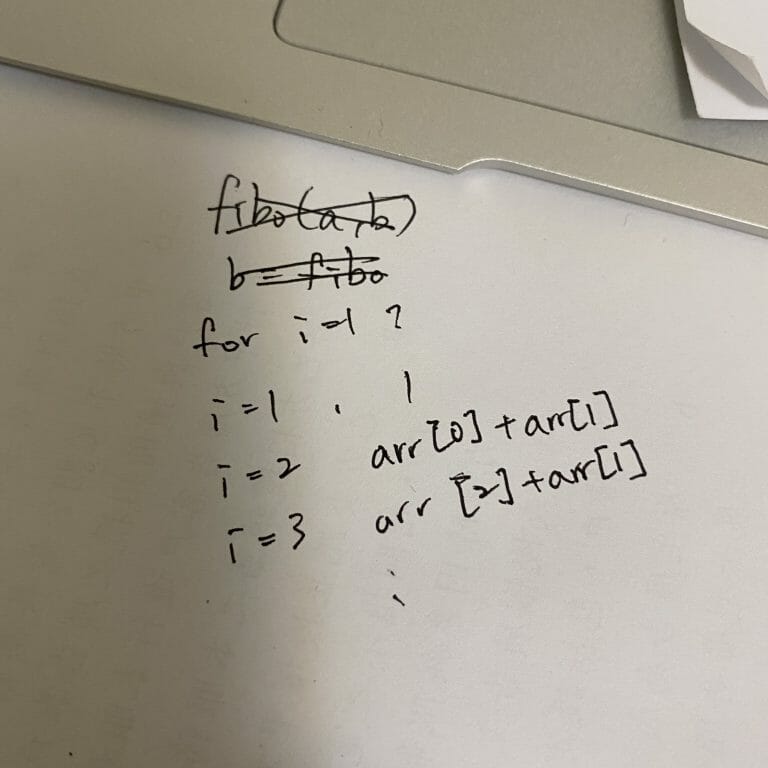 fibo(a,b)
b = fibo
for i=1 ?
i=1 . 1
i=2 arr[0]+arr[1]
i=3 arr[2]+arr[1]